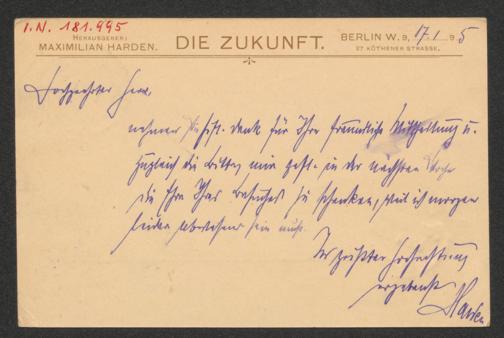 I.N. 181.995
HERAUSGEBER:
MAXIMILIAN HARDEN.
DIE ZUKUNFT.
BERLIN W. 9, 17.1.95
27 KÖTHENER STRASSE.
Hochgeehrter Herr,
nehmen Sie hzl. Dank für Ihre freundliche Mittheilung u.
zugleich die Bitte, mir gefl. in der nächsten Woche
die Ehre Ihres Besuches zu schenken, weil ich morgen
leider abwesend sein muß.
In größter Hochachtung
ergebenst
Harden